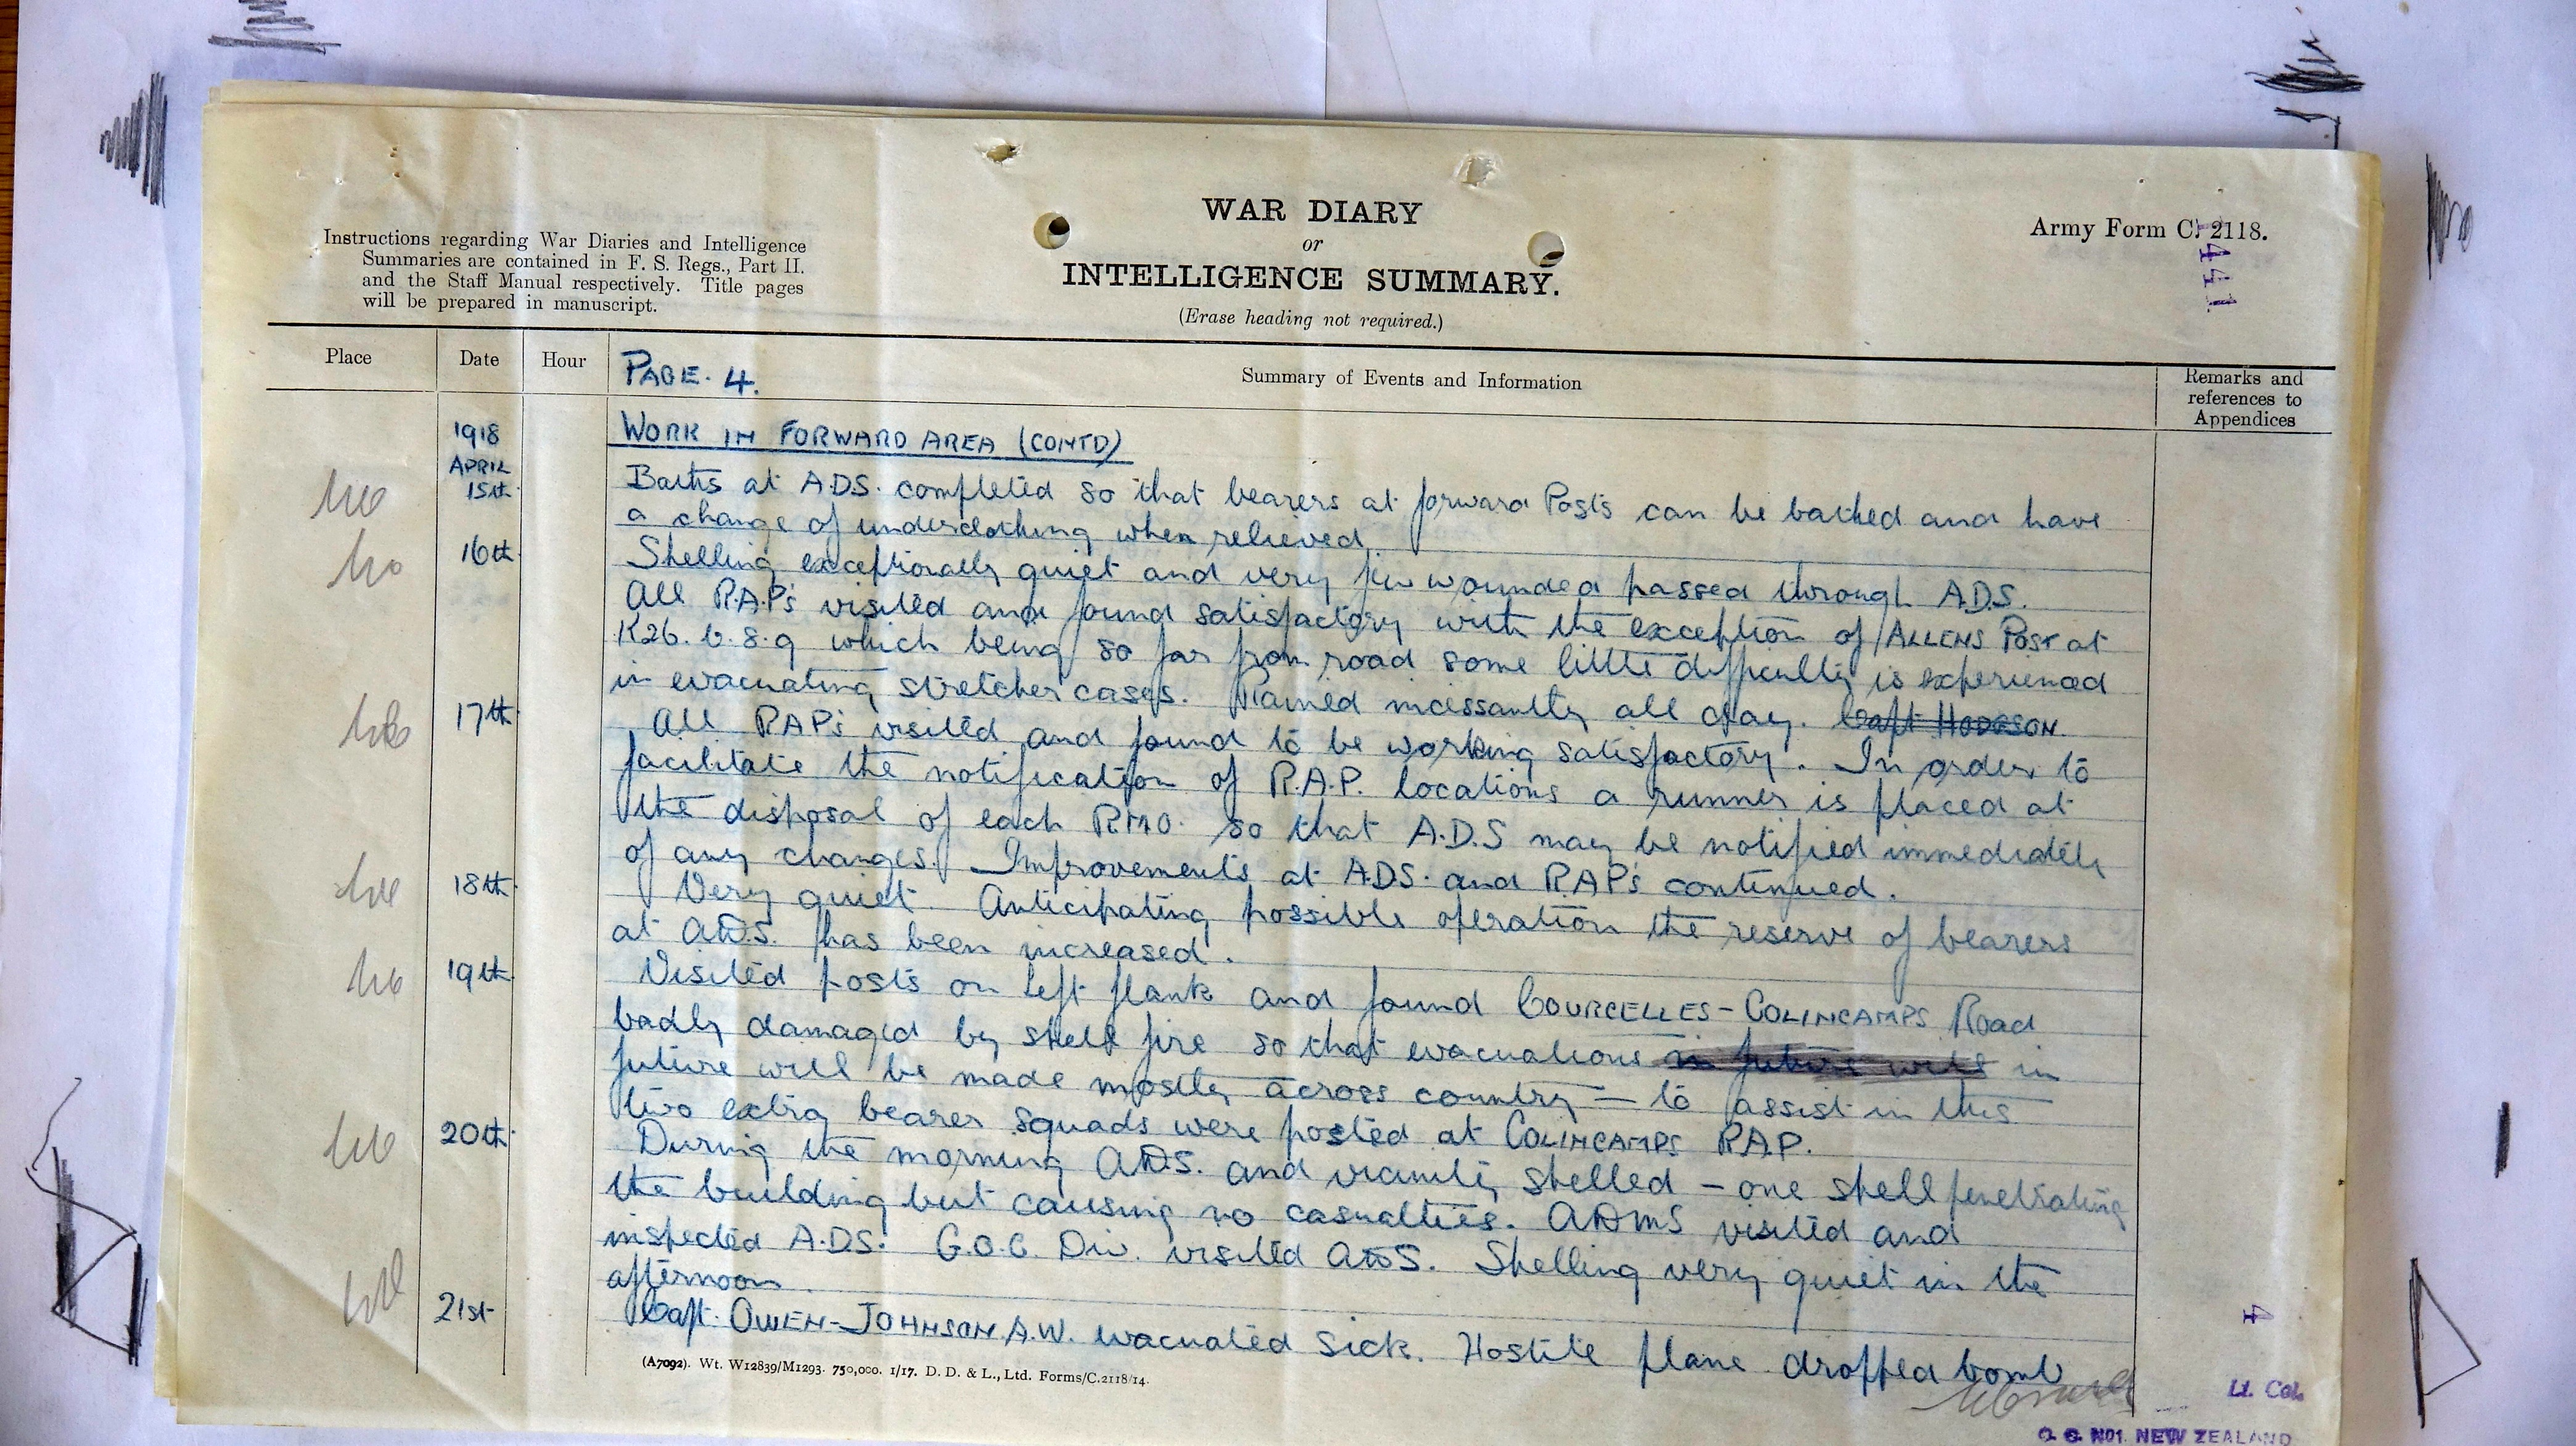 WAR DIARY
or
INTELLIGENCE SUMMARY.
(Erase heading not required.)
Instructions regarding War Diaries and Intelligence
Summaries are contained in F. S. Regs., Part II.
and the Staff Manual respectively. Title pages
will be prepared in manuscript.
Army Form C. 2118.
1441
Place
Date
Hour
PAGE. 4.
Summary of Events and Information
Remarks and
references to
Appendices
1918
WORK IN FORWARD AREA (CONTD)
APRIL
15th. Baths at A.D.S. completed so that bearers at forward Posts can be bathed and have
a change of underclothing when relieved.
16th. Shelling exceptionally quiet and very few wounded passed through A.D.S.
All R.A.P's visited and found satisfactory with the exception of ALLENS POST at
K26. b. 8. 9 which being so far from road some little difficulty is experienced
in evacuating stretcher cases. Rained incessantly all day. Capt HODGSON.
17th. All RAP's visited and found to be working satisfactory. In order to
facilitate the notification of R.A.P. locations a runner is placed at
the disposal of each RMO. so that A.D.S may be notified immediately
of any changes. Improvements at ADS. and RAP's continued.
18th. Very quiet. Anticipating possible operation the reserve of bearers
at ADS. has been increased.
19th. Visited posts on left flank and found COURCELLES-COLINCAMPS Road
badly damaged by shell fire so that evacuations in future will in
future will be made mostly across country — to assist in this
two extra bearer squads were posted at COLINCAMPS RAP.
20th. During the morning ADS. and vicinity shelled – one shell penetrating
the building but causing no casualties. ADMS visited and
inspected A.D.S. G.O.C. Div. visited ADS. Shelling very quiet in the
afternoon.
21st Capt. OWEN-JOHNSON. A.W. evacuated sick. Hostile plane dropped bomb
(A7092). Wt. W12839/M1293. 750,000. 1/17. D. D. & L., Ltd. Forms/C.2118/14.
4
Lt. Col.
O. C. No1. NEW ZEALAND